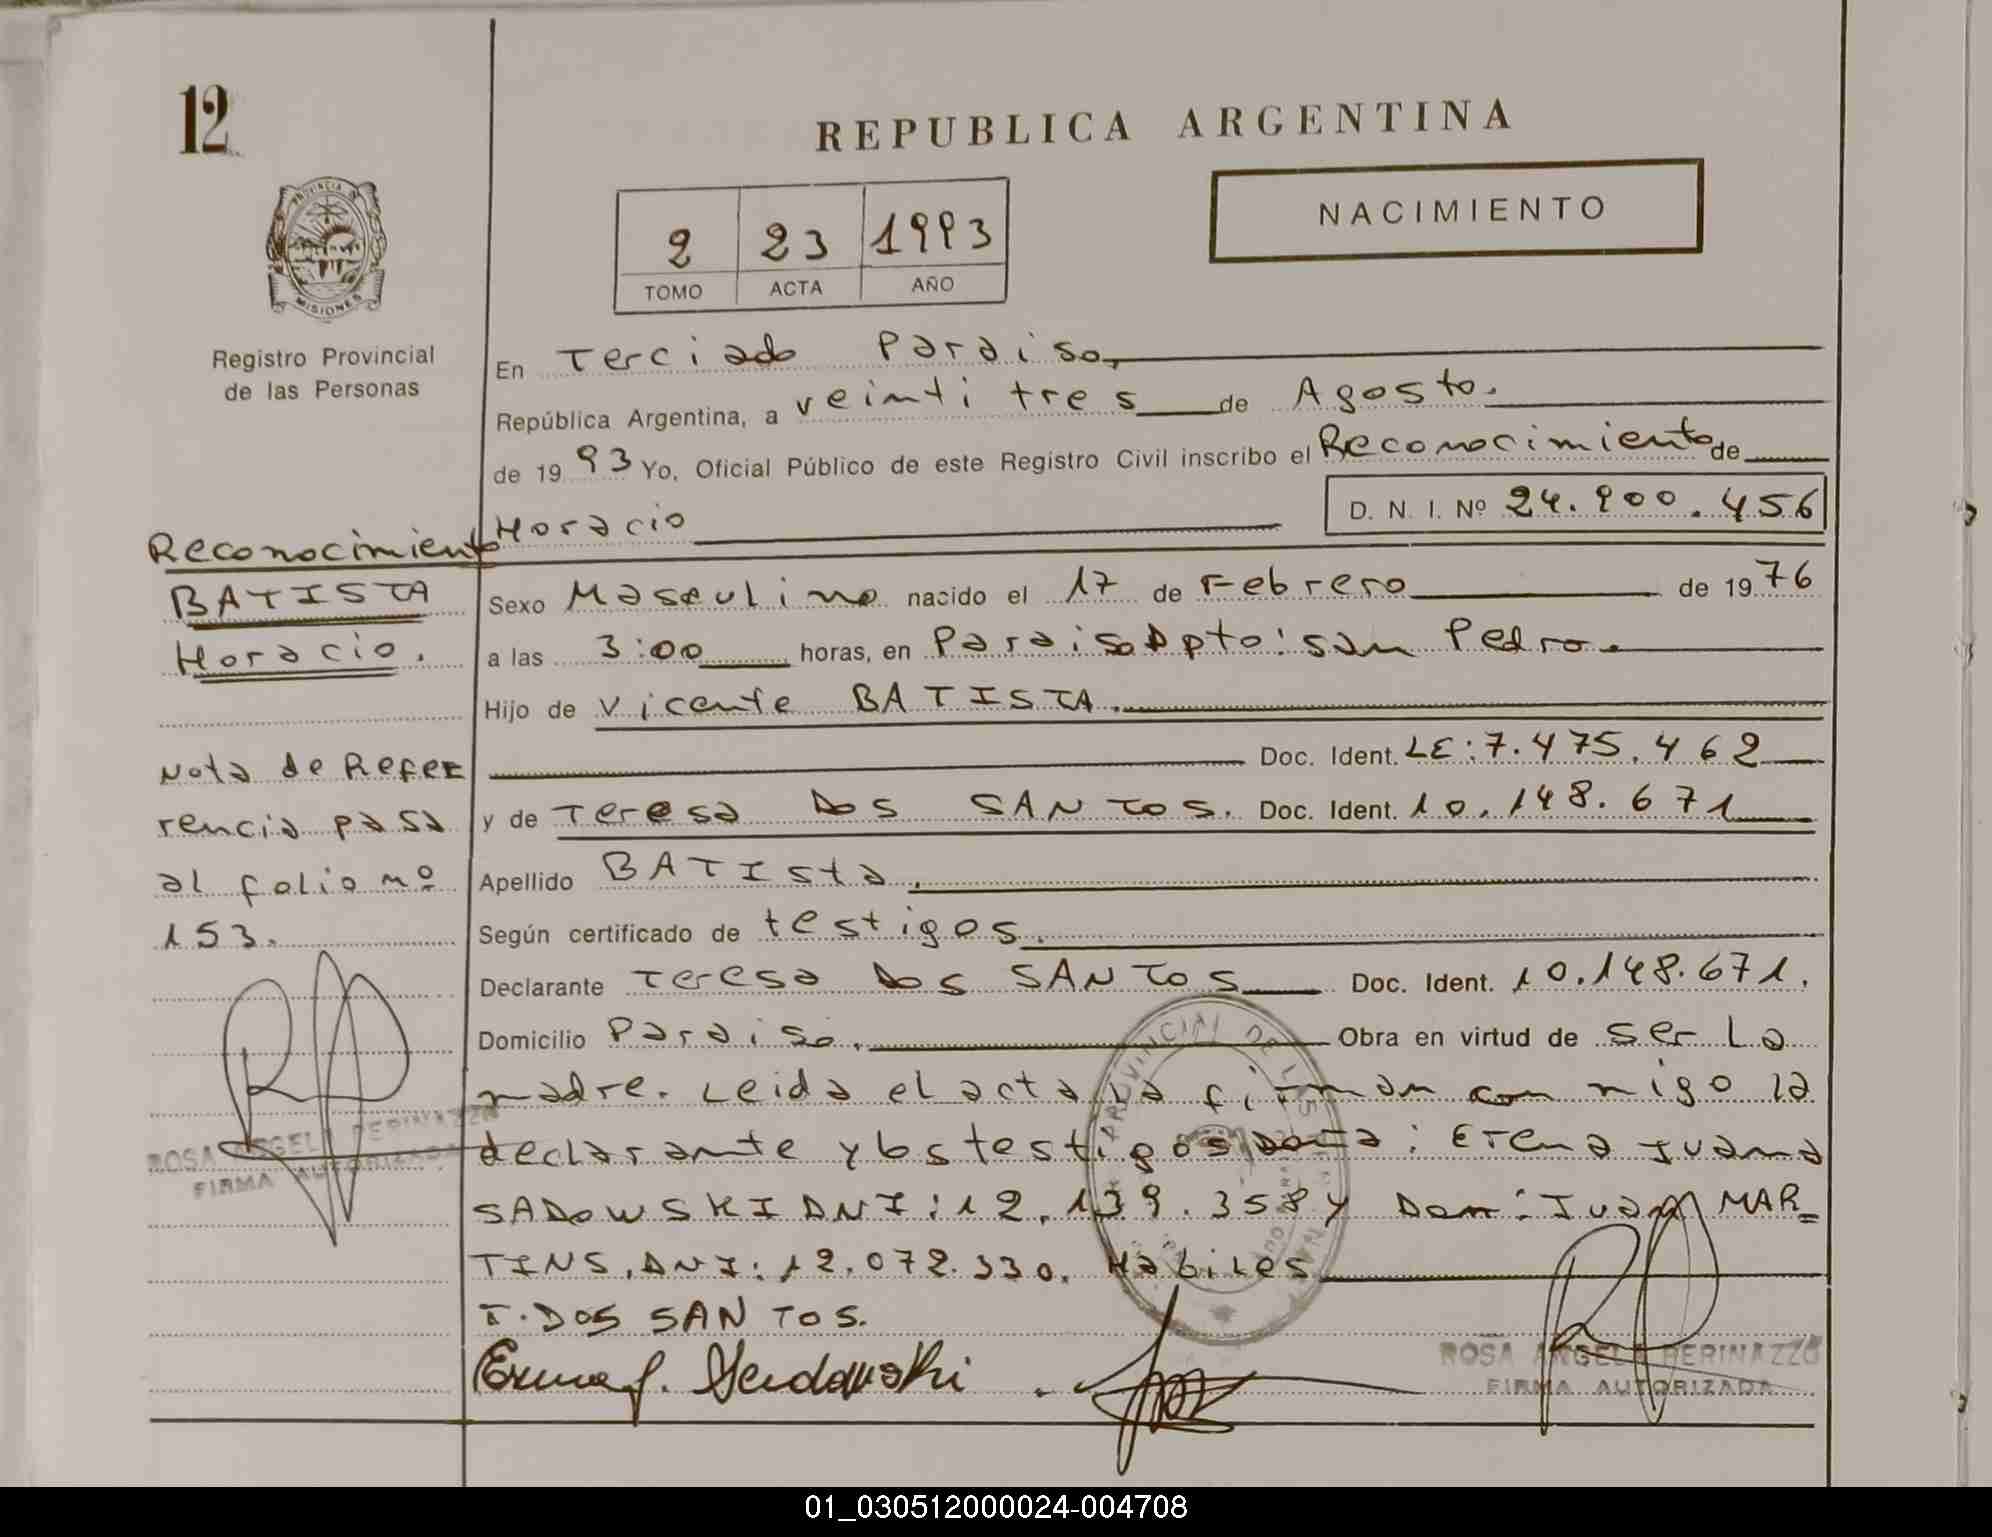 12
REPUBLICA ARGENTINA
NACIMIENTO
2 23 1993
TOMO ACTA AÑO
PROVINCIA DE MISIONES
Registro Provincial
de las Personas
En Terciado Paraiso,
República Argentina, a veinti tres de Agosto.
de 1993 Yo, Oficial Público de este Registro Civil inscribo el Reconocimiento de
Horacio D. N. I. Nº 24.900.456
Reconocimiento
BATISTA
Horacio.
Nota de Refe
rencia pasa
al folio nº
153.
ROSA ANGELA PERINAZZO
FIRMA AUTORIZADA
Sexo Masculino nacido el 17 de Febrero de 1976
a las 3:00 horas, en Paraiso Dpto: San Pedro.
Hijo de Vicente BATISTA.
Doc. Ident. LE: 7.475.462
y de Teresa DOS SANTOS. Doc. Ident. 10.148.671
Apellido BATISta.
Según certificado de testigos.
Declarante Teresa DOS SANTOS Doc. Ident. 10.148.671.
Domicilio Paraiso. Obra en virtud de ser La
madre. Leida el acta la firman con migo la
declarante y los testigos Doña: Erena Juana
SADOWSKI DNI: 12.139.358 y Don: Juan MAR=
TINS, DNI: 12.072.330. Habiles
T. DOS SANTOS.
ROSA ANGELA PERINAZZO
FIRMA AUTORIZADA
01_030512000024-004708